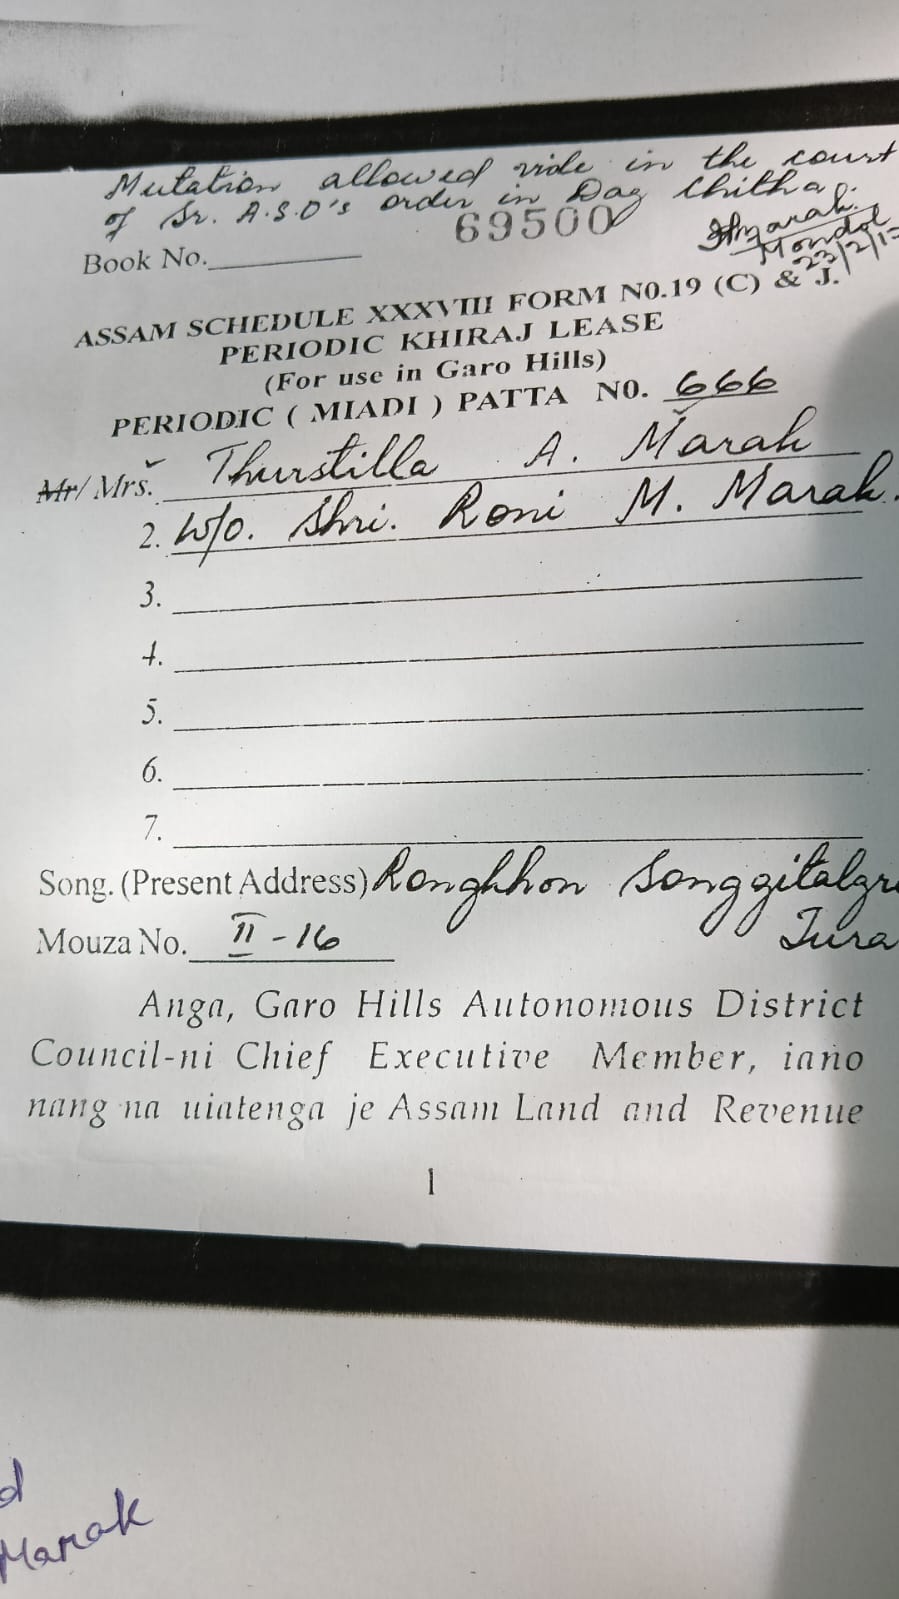 Mutation allowed vide in the court
of Sr. A.S.O's order in Dag Chitha
69500
Marak
Mondol
23/2/1
Book No.
ASSAM SCHEDULE XXXVIII FORM N0.19 (C) & J.
PERIODIC KHIRAJ LEASE
(For use in Garo Hills)
PERIODIC ( MIADI ) PATTA N0. 666
Mr/ Mrs. Thurstilla A. Marak
2. W/o. Shri. Roni M. Marak.
3.
4.
5.
6.
7.
Song. (Present Address) Rongkhon Songgitalgre
Tura
Mouza No. II-16
Anga, Garo Hills Autonomous District
Council-ni Chief Executive Member, iano
nang na uiatenga je Assam Land and Revenue
1
d
Marak